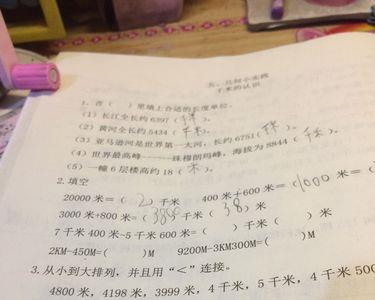 五、几何小实践
千米的认识
1. 在（ ）里填上合适的长度单位。
（1）长江全长约 6397（ ）。
（2）黄河全长约 5434（千米）。
（3）亚马逊河是世界第一大河，长约 6751（ ）。
（4）世界最高峰——珠穆朗玛峰，海拔为 8844（ ）。
（5）一幢 6 层楼高约 18（米）。
2. 填空
20000 米＝（ 2 ）千米 400 米＋600 米＝（1000 米＝（
3000 米+800 米＝（3800 千米（ 38 ）米
7 千米 400 米-5 千米 600 米＝（ ）千米（ ）米
2KM-450M=（ ）M 9200M-3KM300M=（ ）M
3. 从小到大排列，并且用“＜”连接。
4800 米，4198 米，3999 米，4 千米，5 千米，4 千米 500